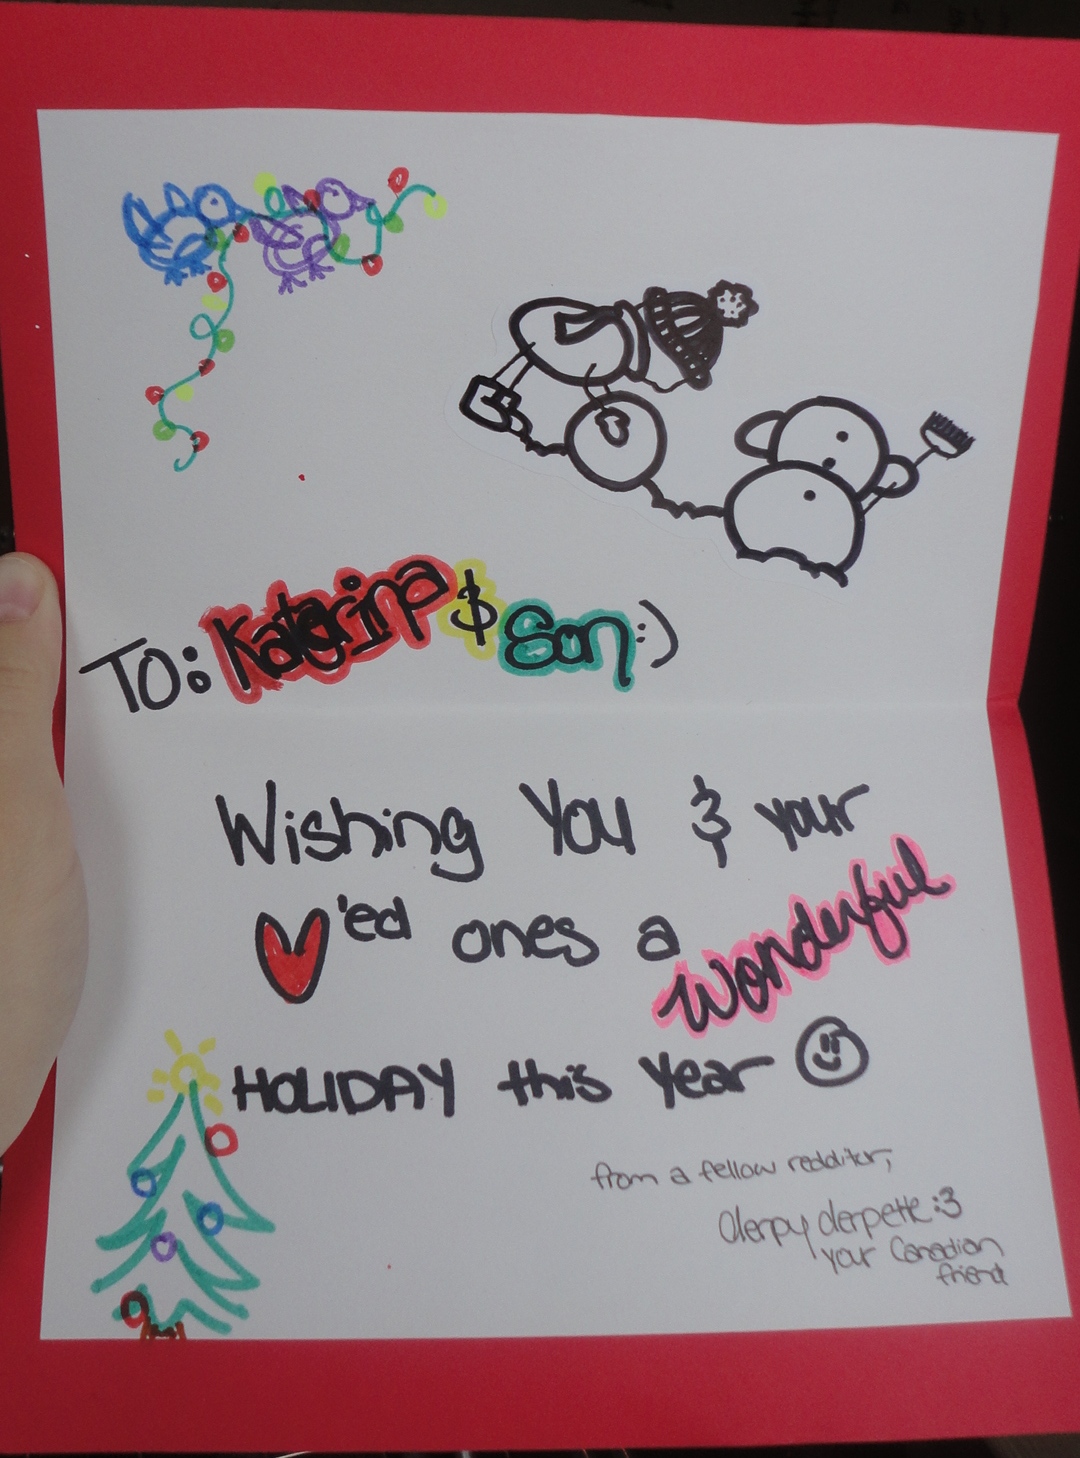 To: Katerina & Son :)
Wishing You & your
♥'ed ones a wonderful
HOLIDAY this Year ☺
from a fellow redditor,
derpy derpette :3
your Canadian
friend